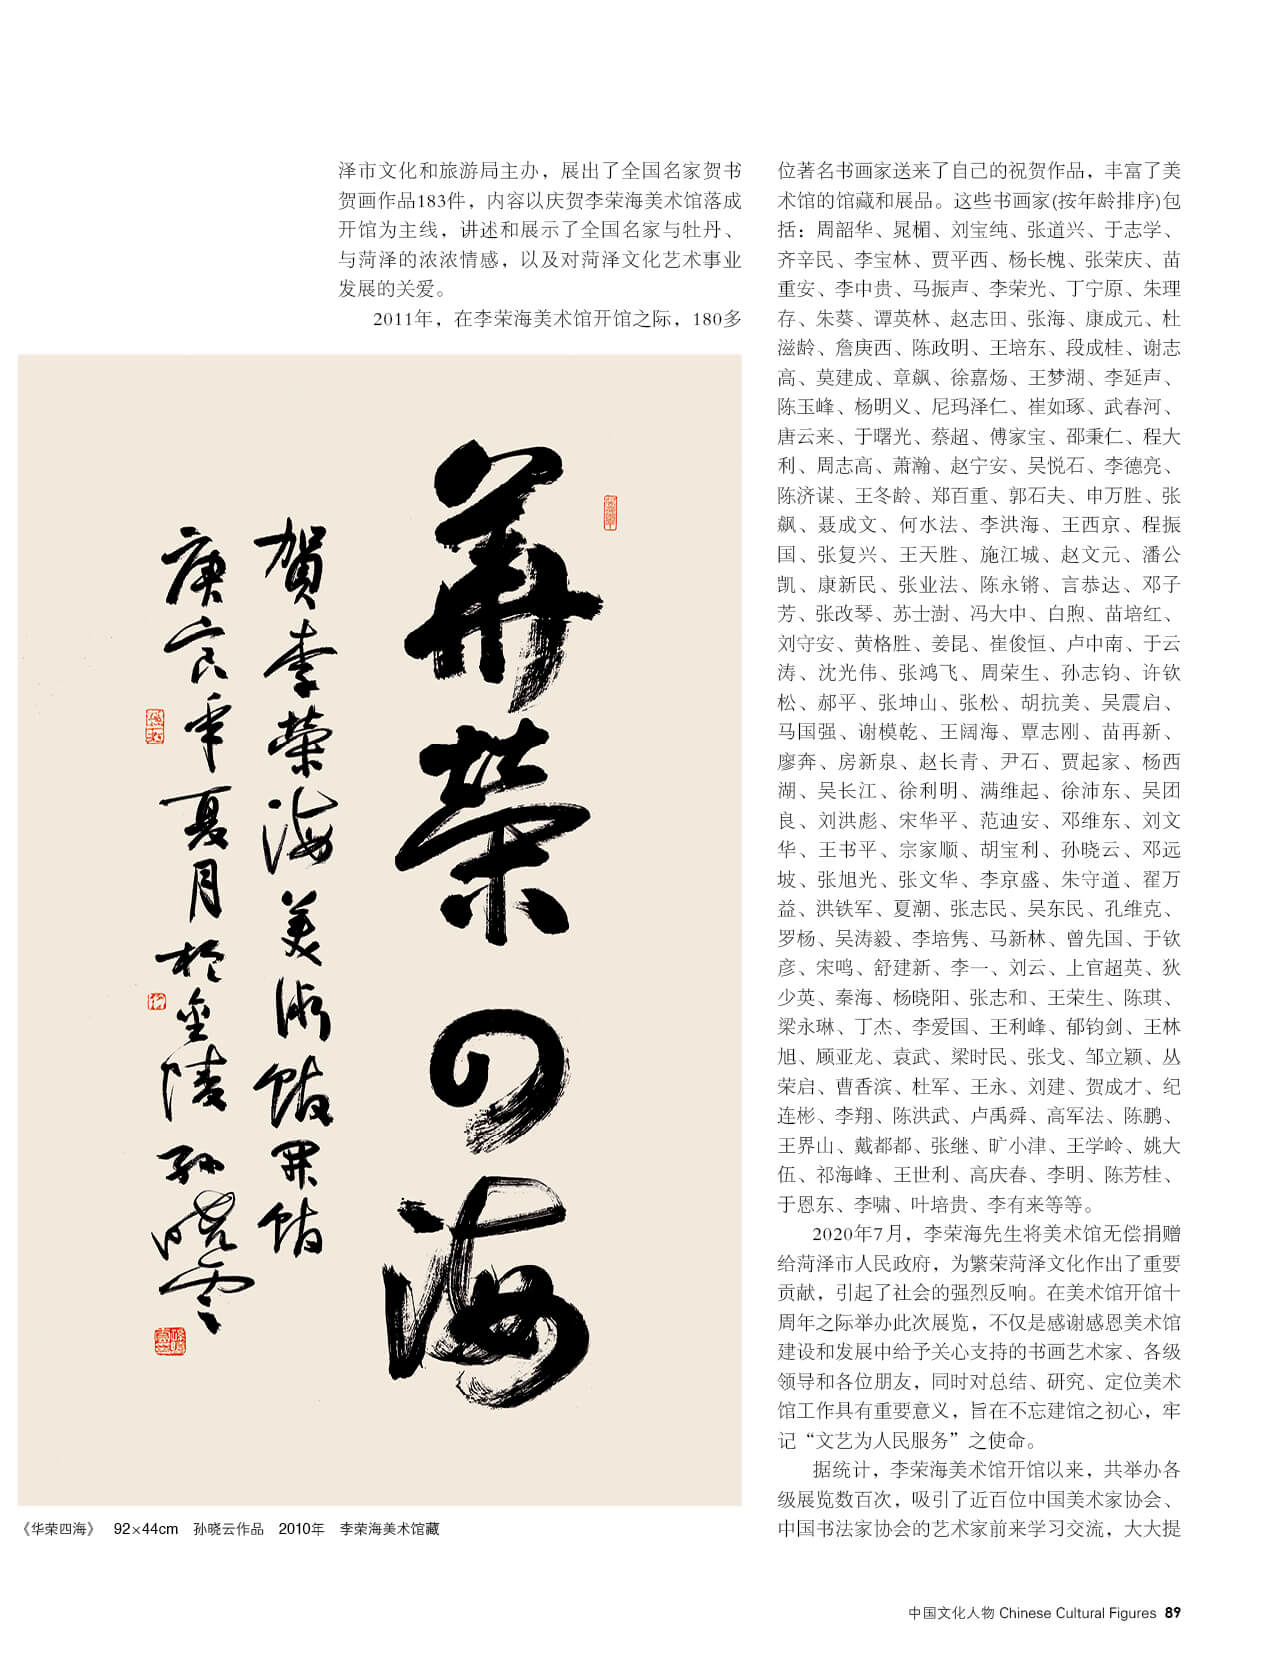 泽市文化和旅游局主办，展出了全国名家贺书
贺画作品183件，内容以庆贺李荣海美术馆落成
开馆为主线，讲述和展示了全国名家与牡丹、
与菏泽的浓浓情感，以及对菏泽文化艺术事业
发展的关爱。
2011年，在李荣海美术馆开馆之际，180多
華荣四海
賀李荣海美術馆開馆
庚寅年夏月於金陵孙晓云
《华荣四海》 92×44cm 孙晓云作品 2010年 李荣海美术馆藏
位著名书画家送来了自己的祝贺作品，丰富了美
术馆的馆藏和展品。这些书画家(按年龄排序)包
括：周韶华、晁楣、刘宝纯、张道兴、于志学、
齐辛民、李宝林、贾平西、杨长槐、张荣庆、苗
重安、李中贵、马振声、李荣光、丁宁原、朱理
存、朱葵、谭英林、赵志田、张海、康成元、杜
滋龄、詹庚西、陈政明、王培东、段成桂、谢志
高、莫建成、章飙、徐嘉炀、王梦湖、李延声、
陈玉峰、杨明义、尼玛泽仁、崔如琢、武春河、
唐云来、于曙光、蔡超、傅家宝、邵秉仁、程大
利、周志高、萧瀚、赵宁安、吴悦石、李德亮、
陈济谋、王冬龄、郑百重、郭石夫、申万胜、张
飙、聂成文、何水法、李洪海、王西京、程振
国、张复兴、王天胜、施江城、赵文元、潘公
凯、康新民、张业法、陈永锵、言恭达、邓子
芳、张改琴、苏士澍、冯大中、白煦、苗培红、
刘守安、黄格胜、姜昆、崔俊恒、卢中南、于云
涛、沈光伟、张鸿飞、周荣生、孙志钧、许钦
松、郝平、张坤山、张松、胡抗美、吴震启、
马国强、谢模乾、王阔海、覃志刚、苗再新、
廖奔、房新泉、赵长青、尹石、贾起家、杨西
湖、吴长江、徐利明、满维起、徐沛东、吴团
良、刘洪彪、宋华平、范迪安、邓维东、刘文
华、王书平、宗家顺、胡宝利、孙晓云、邓远
坡、张旭光、张文华、李京盛、朱守道、翟万
益、洪铁军、夏潮、张志民、吴东民、孔维克、
罗杨、吴涛毅、李培隽、马新林、曾先国、于钦
彦、宋鸣、舒建新、李一、刘云、上官超英、狄
少英、秦海、杨晓阳、张志和、王荣生、陈琪、
梁永琳、丁杰、李爱国、王利峰、郁钧剑、王林
旭、顾亚龙、袁武、梁时民、张戈、邹立颖、丛
荣启、曹香滨、杜军、王永、刘建、贺成才、纪
连彬、李翔、陈洪武、卢禹舜、高军法、陈鹏、
王界山、戴都都、张继、旷小津、王学岭、姚大
伍、祁海峰、王世利、高庆春、李明、陈芳桂、
于恩东、李啸、叶培贵、李有来等等。
2020年7月，李荣海先生将美术馆无偿捐赠
给菏泽市人民政府，为繁荣菏泽文化作出了重要
贡献，引起了社会的强烈反响。在美术馆开馆十
周年之际举办此次展览，不仅是感谢感恩美术馆
建设和发展中给予关心支持的书画艺术家、各级
领导和各位朋友，同时对总结、研究、定位美术
馆工作具有重要意义，旨在不忘建馆之初心，牢
记“文艺为人民服务”之使命。
据统计，李荣海美术馆开馆以来，共举办各
级展览数百次，吸引了近百位中国美术家协会、
中国书法家协会的艺术家前来学习交流，大大提
中国文化人物 Chinese Cultural Figures 89